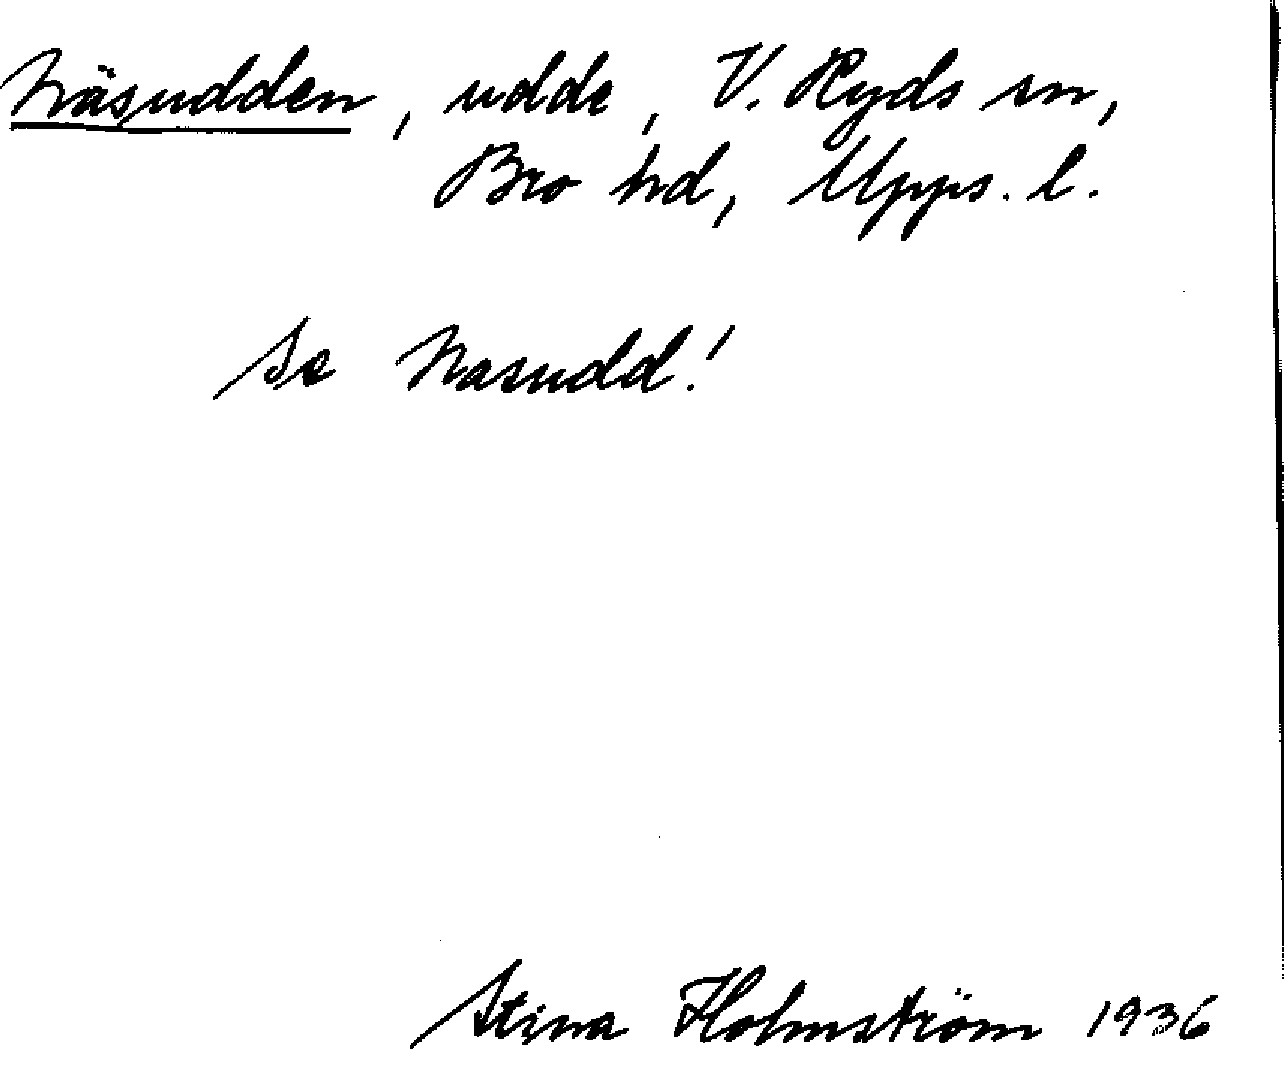 Näsudden, udde, V. Ryds sn,
Bro hd, Upps. l.
Se Nasudd!
Stina Holmström 1936